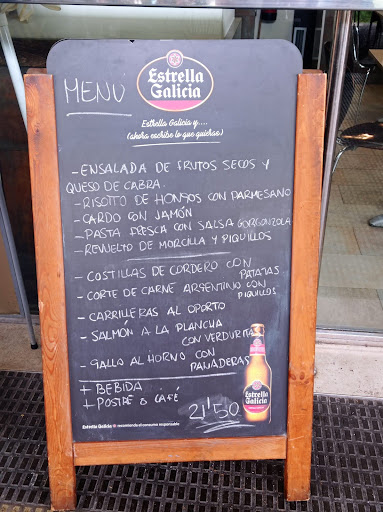 MENÚ
Estrella
Galicia
Estrella Galicia y....
(ahora escribe lo que quieras)
- ENSALADA DE FRUTOS SECOS Y
QUESO DE CABRA.
- RISOTTO DE HONGOS CON PARMESANO
- CARDO CON JAMÓN
- PASTA FRESCA CON SALSA GORGONZOLA
- REVUELTO DE MORCILLA Y PIQUILLOS
- COSTILLAS DE CORDERO CON
PATATAS
- CORTE DE CARNE ARGENTINO CON
PIQUILLOS
- CARRILLERAS AL OPORTO
- SALMÓN A LA PLANCHA
CON VERDURITAS
- GALLO AL HORNO CON
PANADERAS
+ BEBIDA
+ POSTRE O CAFÉ
21'50
Estrella
Galicia
Estrella Galicia recomienda el consumo responsable